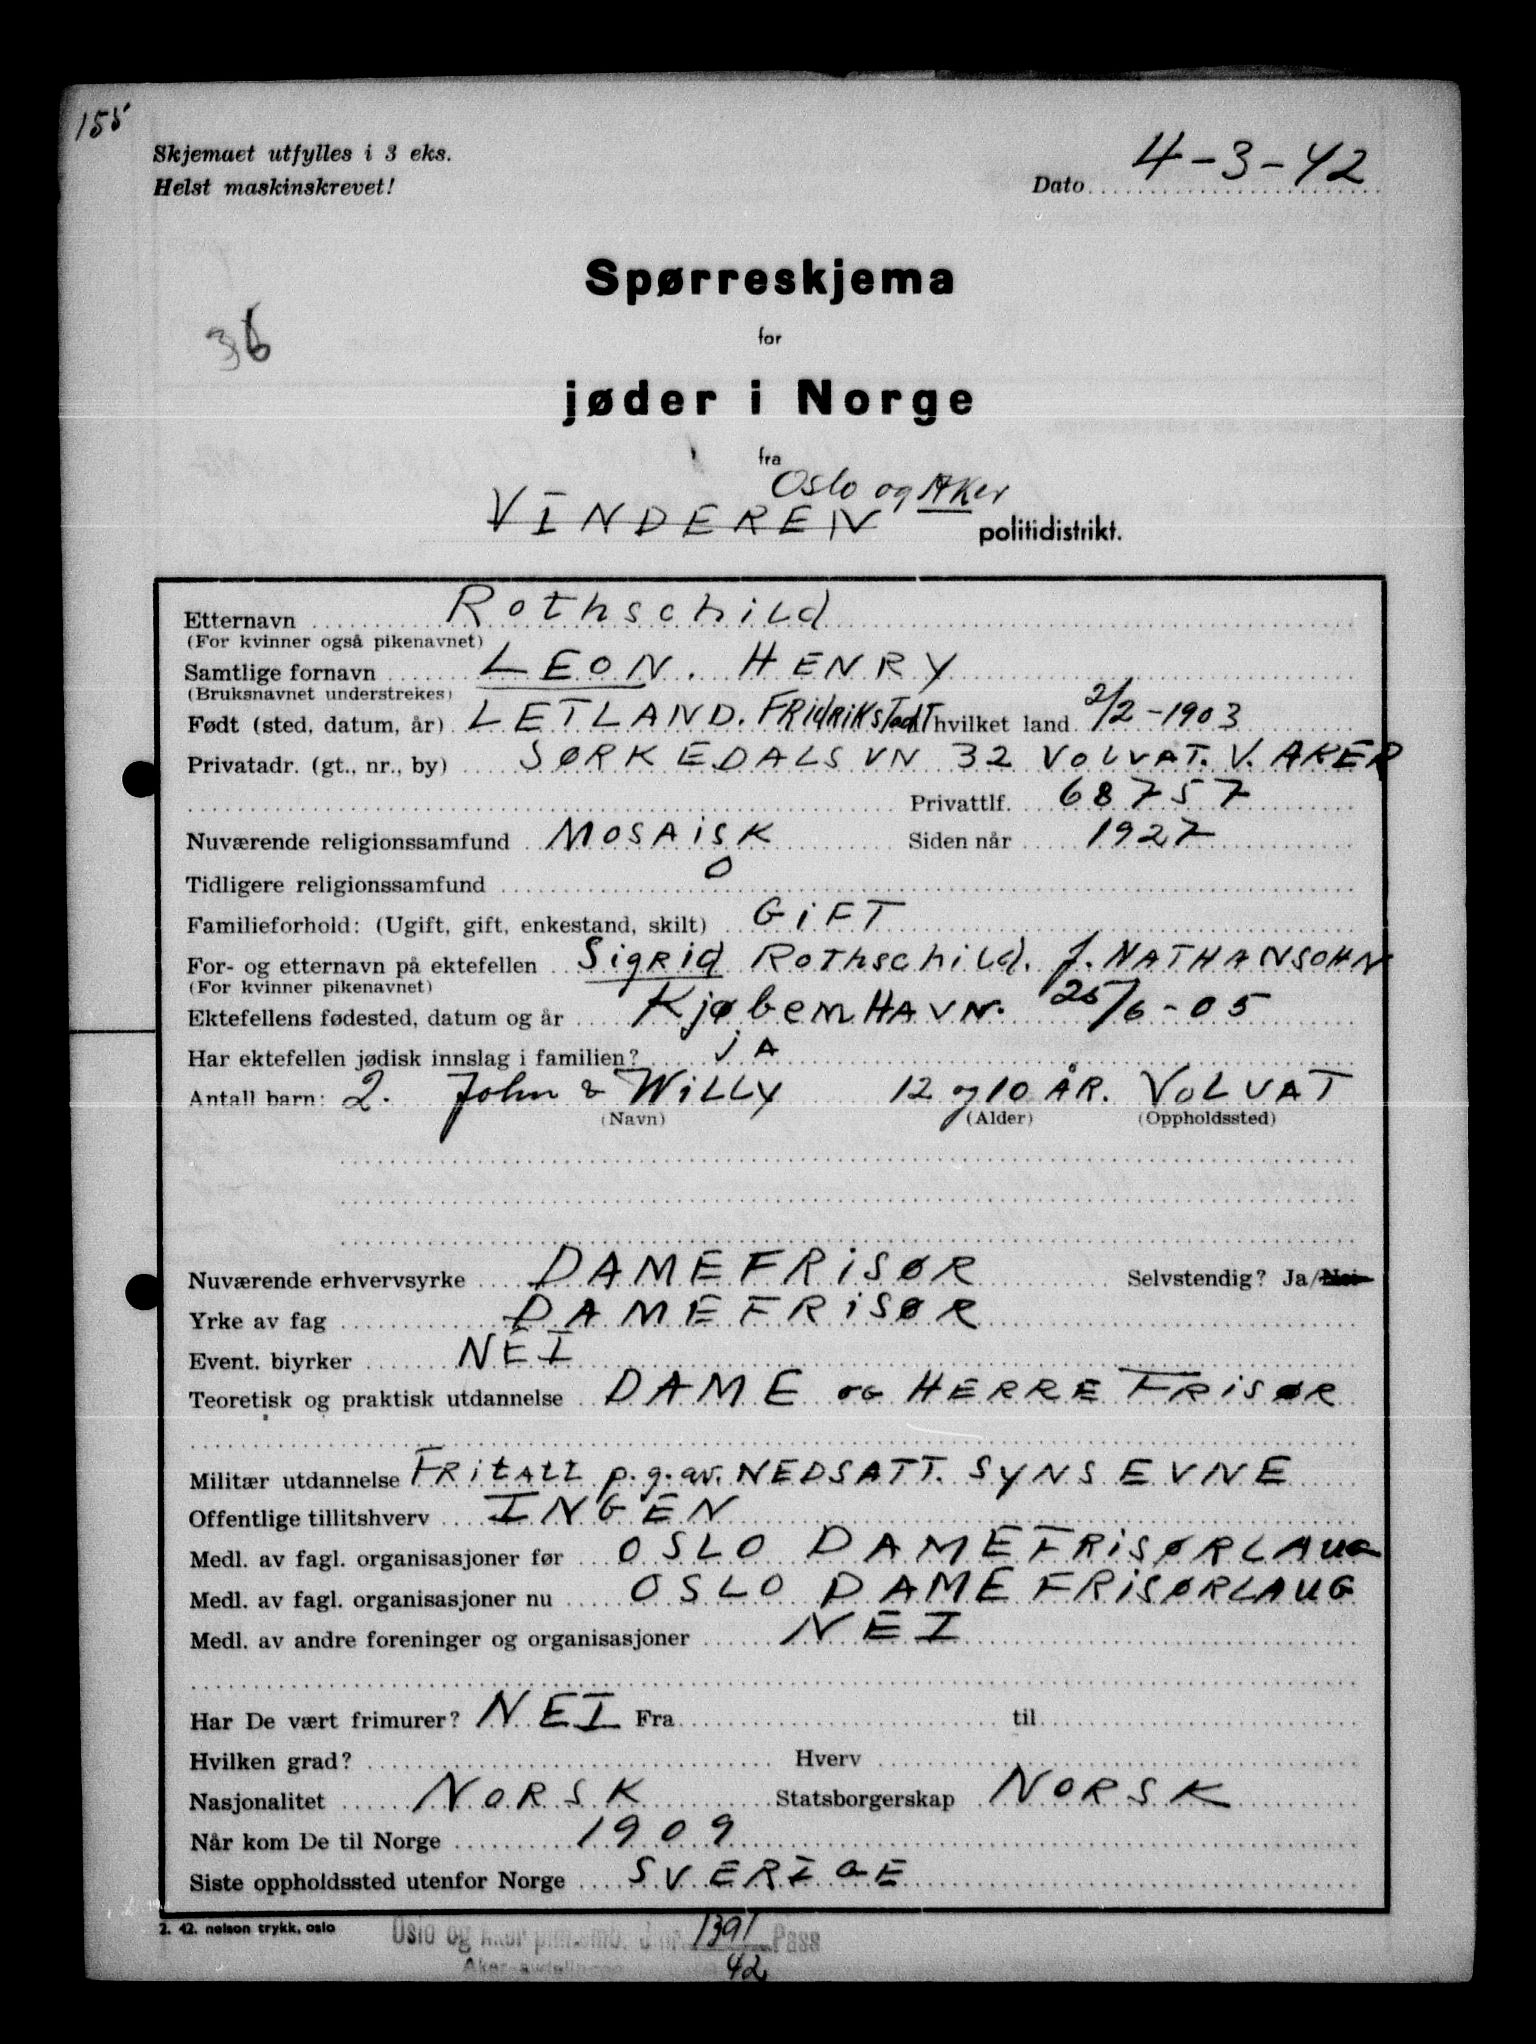 155
Skjemaet utfylles i 3 eks.
Helst maskinskrevet!
Dato 4-3-42
Spørreskjema
36
for
jøder i Norge
fra
Oslo og Aker
VINDEREN politidistrikt.
Etternavn Rothschild
(For kvinner også pikenavnet)
Samtlige fornavn LEON. HENRY
(Bruksnavnet understrekes)
Født (sted, datum, år) LETLAND. FRidRiKsTadT hvilket land 2/2-1903
Privatadr. (gt., nr., by) SØRKEDALSVN 32 VOLVAT. V. AKER
Privattlf. 68757
Nuværende religionssamfund MOSAiSK Siden når 1927
Tidligere religionssamfund 0
Familieforhold: (Ugift, gift, enkestand, skilt) GiFT
For- og etternavn på ektefellen SigRid ROTHschiLd. f. NATHANSOHN
(For kvinner pikenavnet)
Ektefellens fødested, datum og år KjøbenHAVN. 25/6-05
Har ektefellen jødisk innslag i familien? jA
Antall barn: 2. John & WiLLy 12 og 10 ÅR. VOLVAT
(Navn) (Alder) (Oppholdssted)
Nuværende erhvervsyrke DAMEFRiSØR Selvstendig? Ja/Nei
Yrke av fag DAMEFRiSØR
Event. biyrker NEI
Teoretisk og praktisk utdannelse DAME OG HERREFRiSØR
Militær utdannelse FRitAtt p.g.av. NEDSATT. SYNSEVNE
Offentlige tillitshverv INGEN
Medl. av fagl. organisasjoner før OSLO DAMEFRiSØRLAUG
Medl. av fagl. organisasjoner nu OSLO DAMEFRiSØRLAUG
Medl. av andre foreninger og organisasjoner NEI
Har De vært frimurer? NEI Fra til
Hvilken grad? Hverv
Nasjonalitet NORSK Statsborgerskap NORSK
Når kom De til Norge 1909
Siste oppholdssted utenfor Norge SVERIGE
2. 42. nelson trykk, oslo
Oslo og Aker 1391 Pass
42